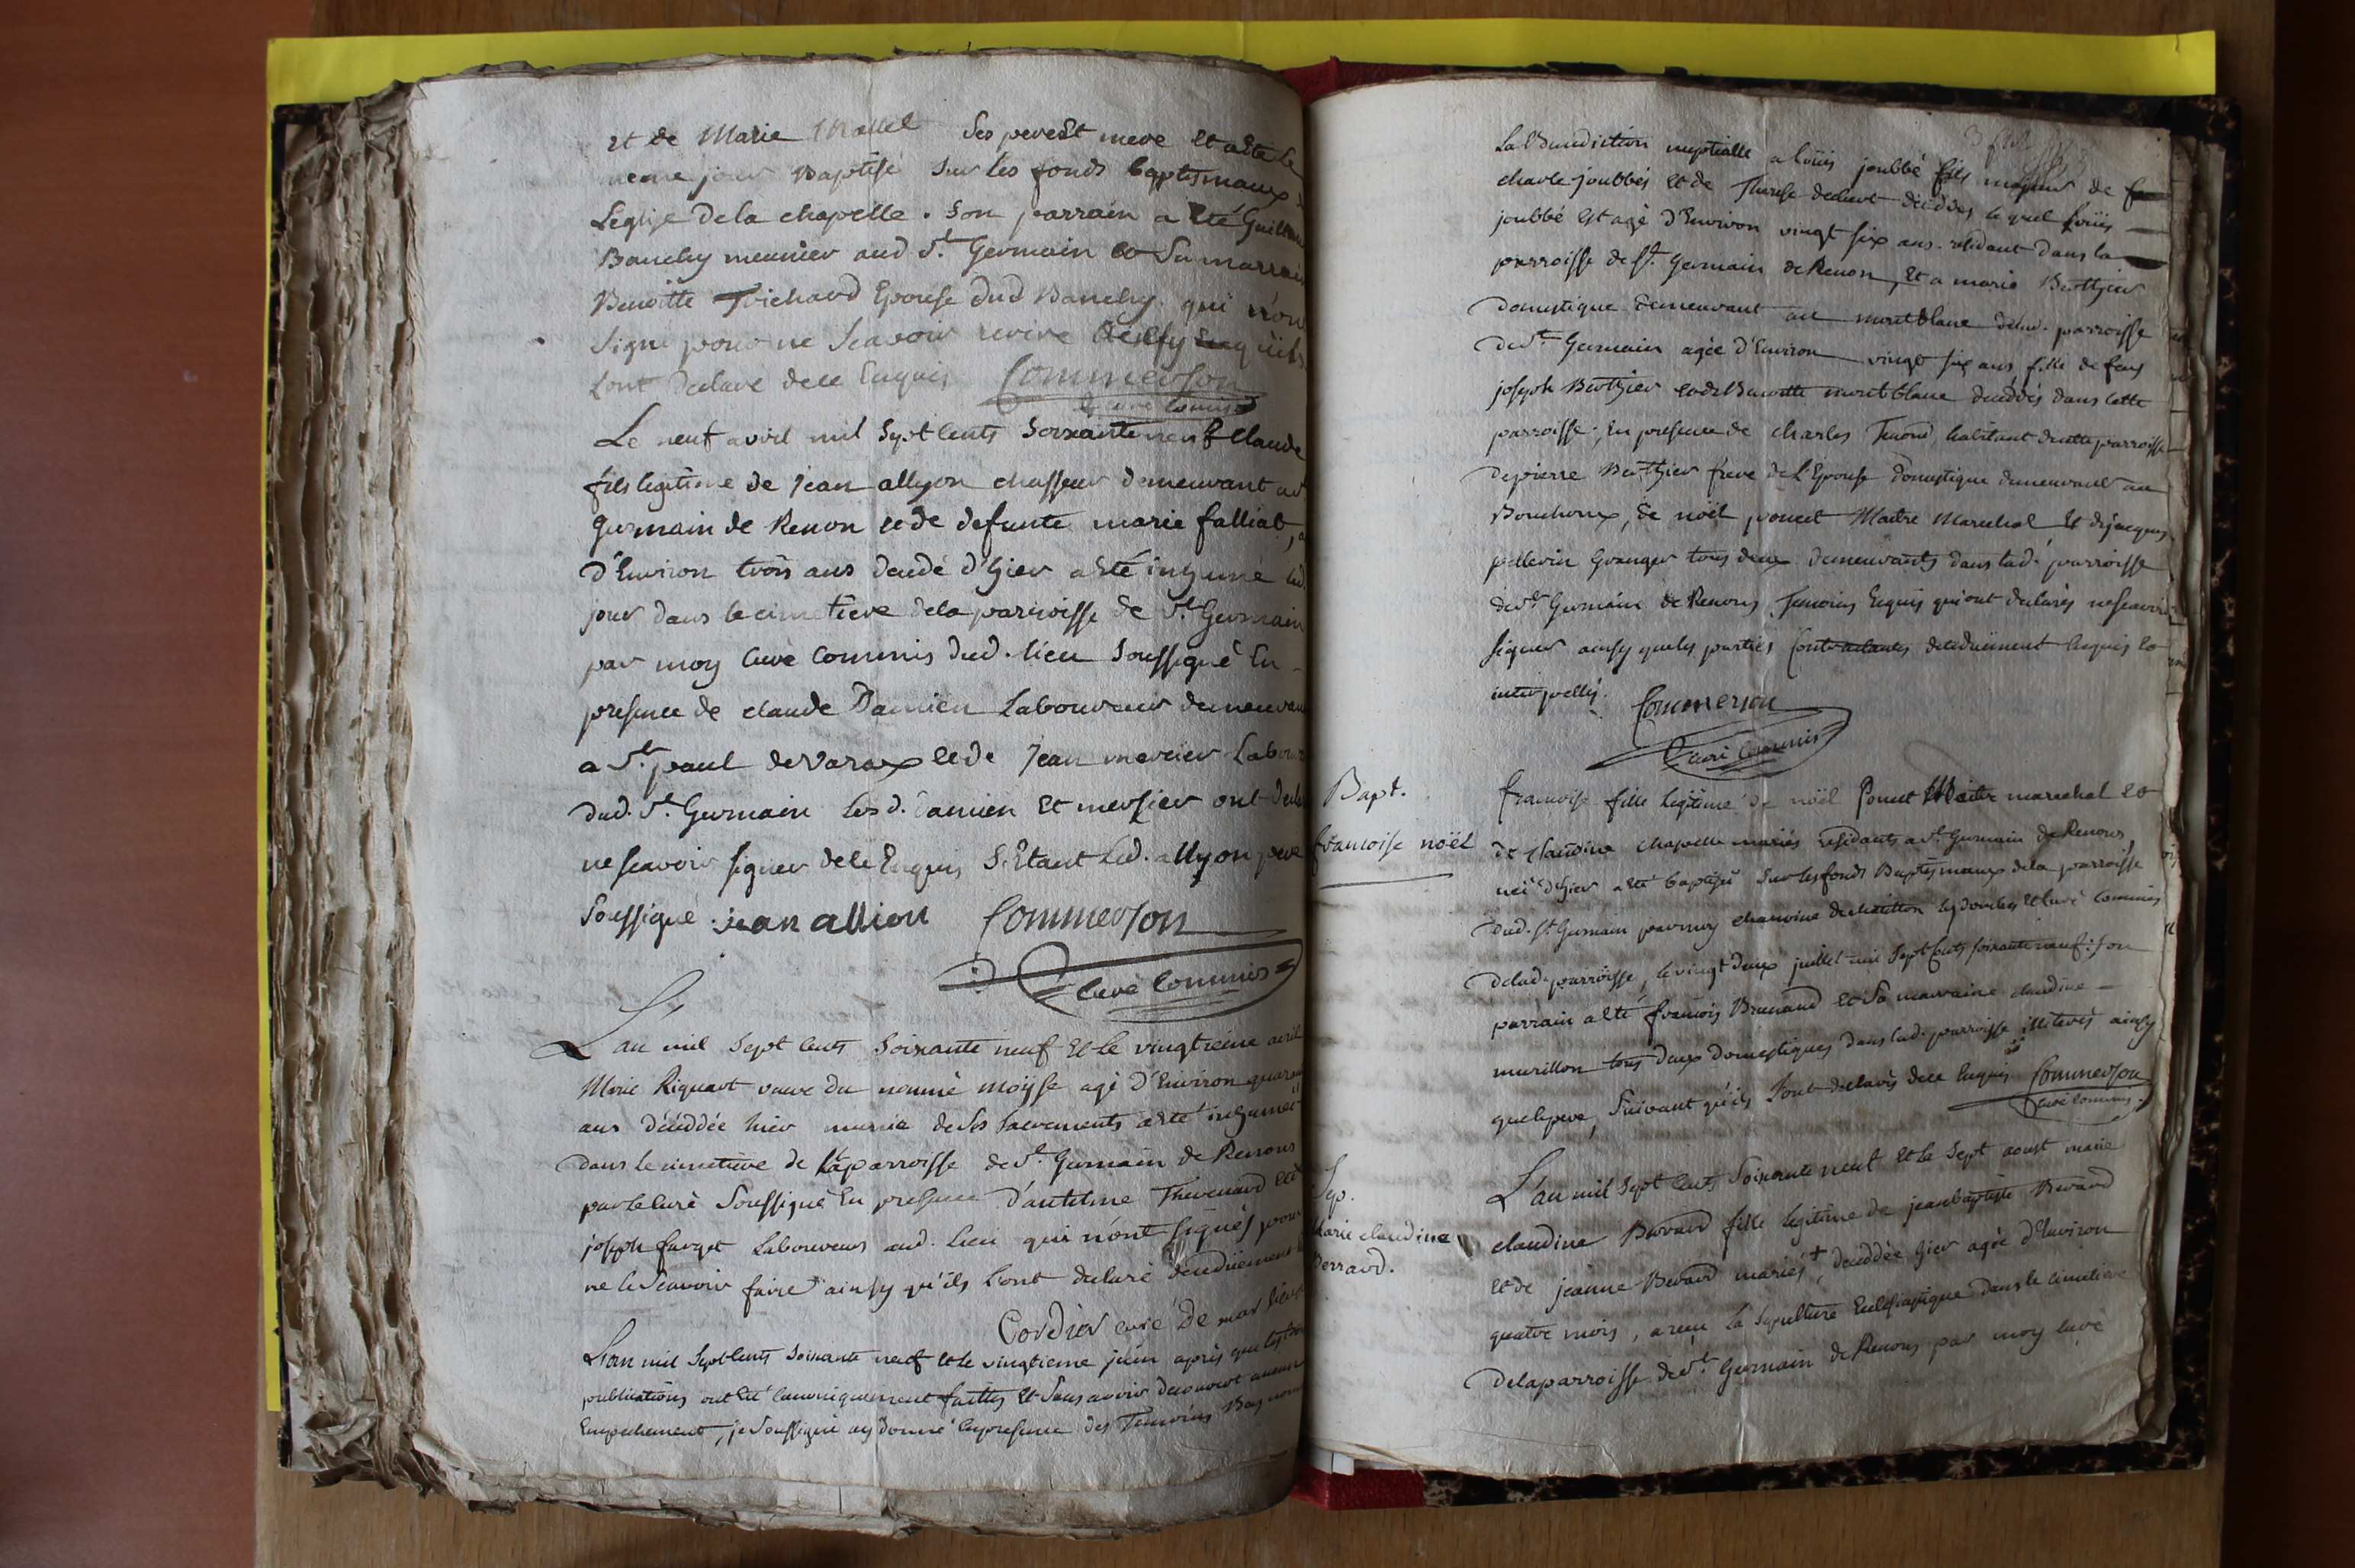 et de Marie Ses pere et mere et a ete le
meme jour Baptisé Sur les fonds baptismaux
L'eglise de la chapelle. Son parrain a eté
Banchy meunier aud. St. Germain et Sa marrai
Benoitte Trichard Epouse dud Banchy. qui n'on
Signé pour ne Scavoir
Lont Declaré de ce Enquis Commerson
curé Commis
Le neuf avril mil Sept Cents Soixante neuf Claude
fils legitime de Jean allyon chasseur demeurant a
Germain de Renon et de defunte marie falliat,
d'Environ trois ans decedé d'hier a eté inhumé
jour dans le cimetiere de la parroisse de St. Germain
par moy Curé Commis dud. lieu Soussigné En
presence de claude Damien Laboureur demeuran
a St. paul de Varax et de Jean mercier Labour
dud. St. Germain Les d. Damien et mersier ont
ne scavoir signer de ce Enquis S'Etant Led. allyon pere
Soussigné. jean allion Commerson
Curé Commis
L'an mil Sept Cents Soixante neuf et le vingtieme avril
Marie Riquart veuve du nommé moÿse agé d'Environ
ans décéddée hier munie de Ses Sacrements a eté inhumeé
dans le cimetiere de la parroisse de St. Germain de Renons
par le Curé Soussigné En presence d'antelme Thevenard et
joseph farget Laboureurs aud. Lieu qui n'ont signés pour
ne le Scavoir faire ainsy qu'ils Lont declaré deuëment
Cordier curé De
L'an mil Sept Cents Soixante neuf et le vingtieme juin après que les
publications ont été Canoniquement faittes et Sans avoir decouvert aucun
Empechement, je Soussigné ay donné En presence des Temoins Bas
La Benediction nuptialle a Loüis joubbé fils majeur de
charle joubbés et de Therese decedes le quel Loüis
joubbé est agé d'Environ vingt six ans. residant dans la
parroisse de St. Germain de Renon, et a marie Berthier
Domestique demeurant au montblanc parroisse
de St. Germain agée d'Environ vingt six ans fille de feus
joseph Berthier et de Benoitte montblanc decedés dans Cette
parroisse; En presence de charles habitant de cette parroisse
de pierre Berthier frere de L'Epouse domestique demeurant au
Bouchoux, de noël poncet Maitre Marechal et de jacques
pellerin Granger tous deux demeurants dans lad. parroisse
de St. Germain de Renons, Temoins Requis qui ont declarés ne scavoir
signer ainsy que les parties Contractantes de ce duëment Enquis et
interpellés. Commerson
Curé Commis
Bapt.
francoise noël
francoise fille legitime de noël Poncet Maitre marechal et
de Claudine chapelle mariés residants a St. Germain de Renons,
neé d'hier a eté baptiseé Sur les fonds Baptismaux de la parroisse
dud. St Germain par moy chanoine de chatillon les dombes et Curé Commis
de lad. parroisse, le vingt deux juillet mil Sept Cents soixante neuf: son
parrain a eté francois Brunand et Sa marraine claudine
murillon tous deux domestiques dans lad. parroisse illiterés ainsy
que le pere, Suivant qu'ils Lont declarés de ce Enquis Commerson
Curé Commis.
Sep.
Marie claudine
Berrard.
L'an mil Sept Cents Soixante neuf et le Sept aoust marie
claudine Berrard fille legitime de jean baptiste Berard
et de jeanne Berard mariés, deceddée hier agée d'Environ
quatre mois, a reçu La Sepulture Eclesiastique dans le cimetiere
de la parroisse de St. Germain de Renons par moy Curé